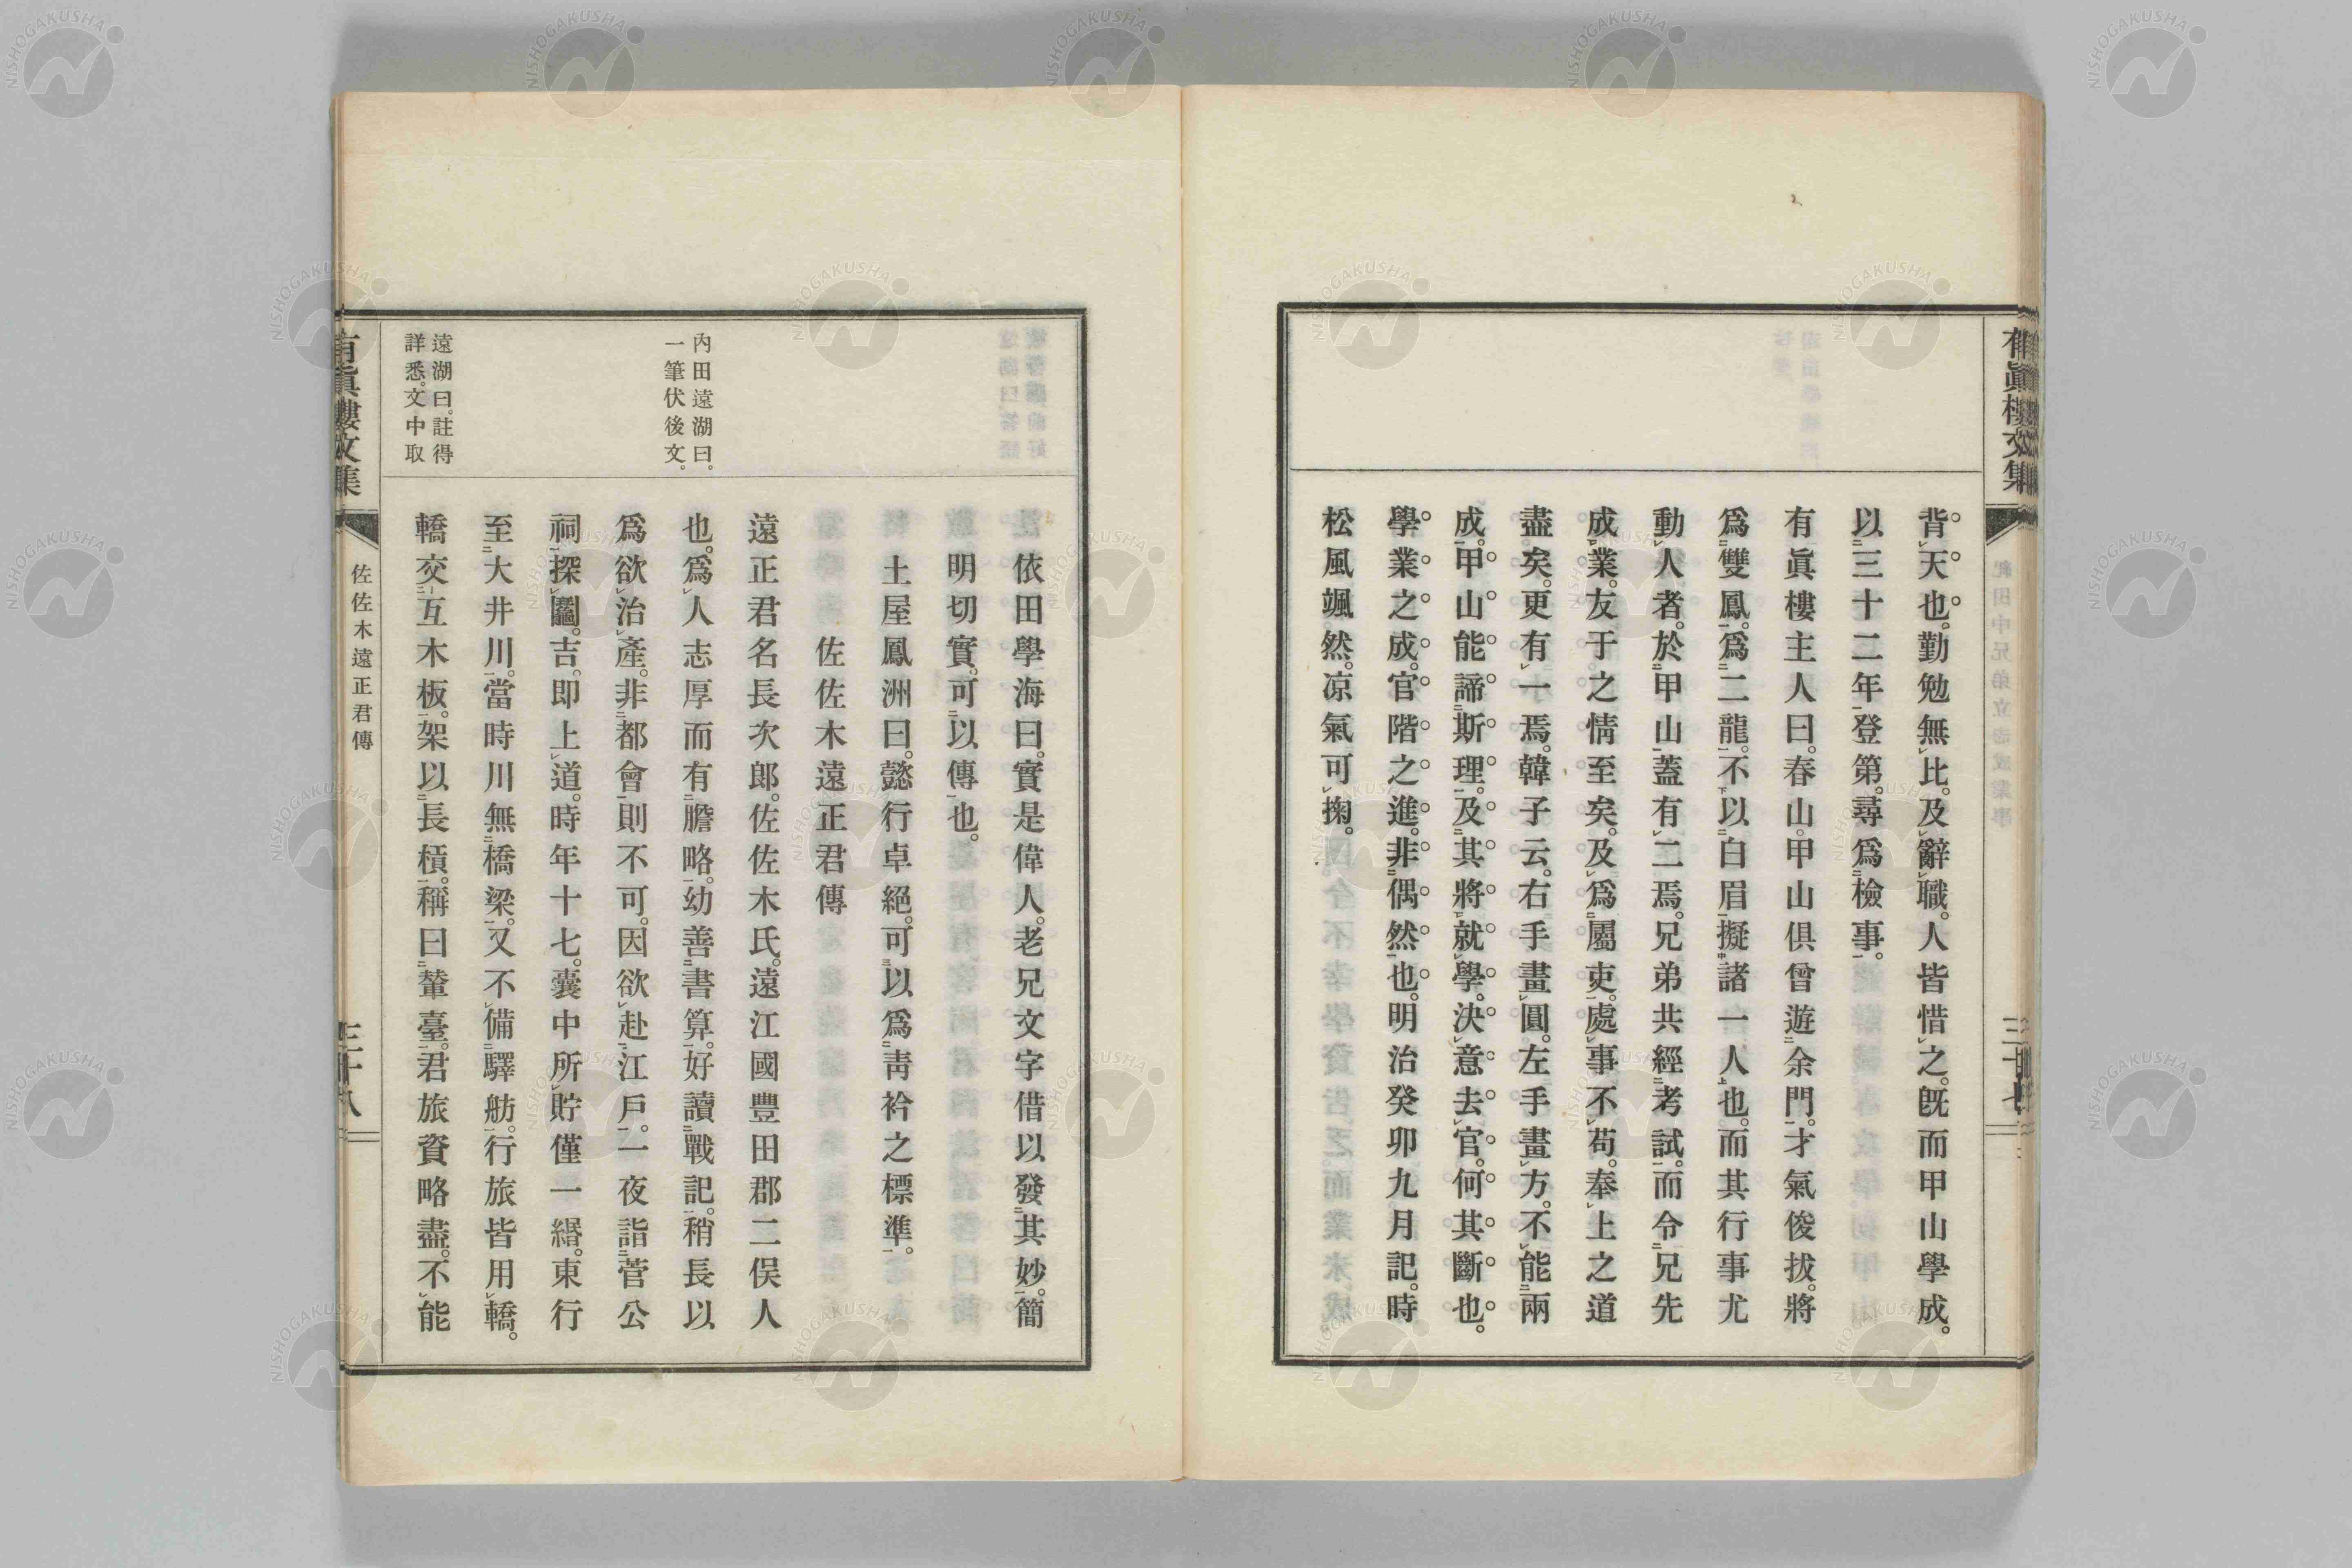 有眞樓文集
三十七
背天也。勤勉無比。及辭職。人皆惜之。既而甲山學成。
以三十二年登第。尋爲檢事。
有眞樓主人曰。春山。甲山俱曾遊余門。才氣俊拔。將
爲雙鳳。爲二龍。不以白眉擬諸一人也。而其行事尤
動人者。於甲山蓋有二焉。兄弟共經考試。而令兄先
成業。友于之情至矣。及爲屬吏。處事不苟。奉上之道
盡矣。更有一焉。韓子云。右手畫圓。左手畫方。不能兩
成。甲山能諦斯理。及其將就學。決意去官。何其斷也。
學業之成。官階之進。非偶然也。明治癸卯九月記。時
松風颯然。凉氣可掬。
依田學海曰。實是偉人。老兄文字借以發其妙。簡
明切實。可以傳也。
土屋鳳洲曰。懿行卓絕。可以爲靑衿之標準。
佐佐木遠正君傳
遠正君名長次郎。佐佐木氏。遠江國豐田郡二俣人
也。爲人志厚而有膽略。幼善書算。好讀戰記。稍長以
爲欲治產。非都會則不可。因欲赴江戶。一夜詣菅公
祠探鬮。吉。即上道。時年十七。囊中所貯僅一緡。東行
至大井川。當時川無橋梁。又不備驛舫。行旅皆用轎。
轎交互木板。架以長槓。稱曰輦臺。君旅資略盡。不能
內田遠湖曰。
一筆伏後文。
遠湖曰。註得
詳悉。文中取
有眞樓文集
佐佐木遠正君傳
三十八